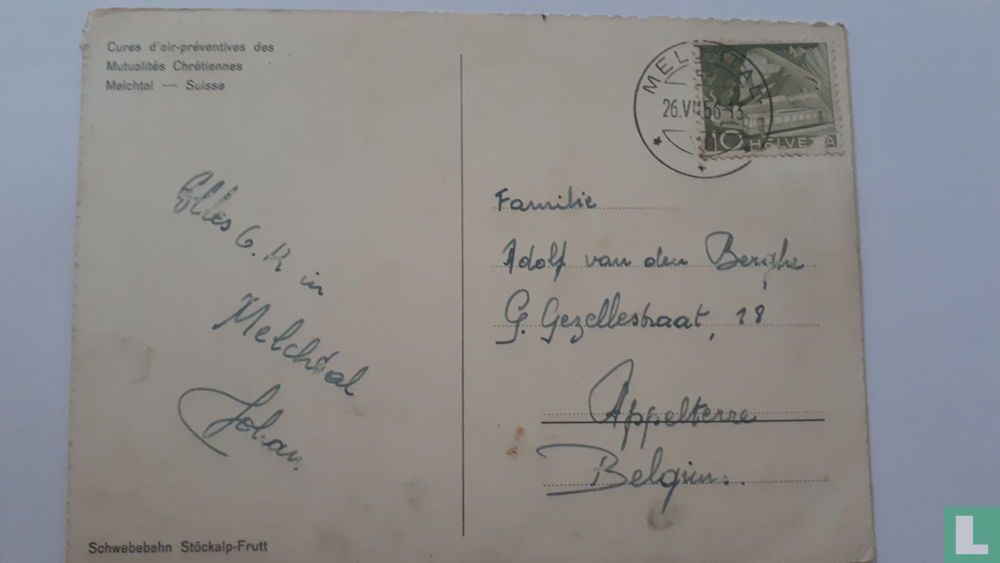 Cures d'air-préventives des
Mutualités Chrétiennes
Melchtal — Suisse
MELCHTAL
26.VII.56-13
10 HELVETIA
Familie
Adolf van den Berghe
G. Gezellestraat, 18
Appelterre
Belgium.
in
Melchtal
Johan.
Schwebebahn Stöckalp-Frutt
L